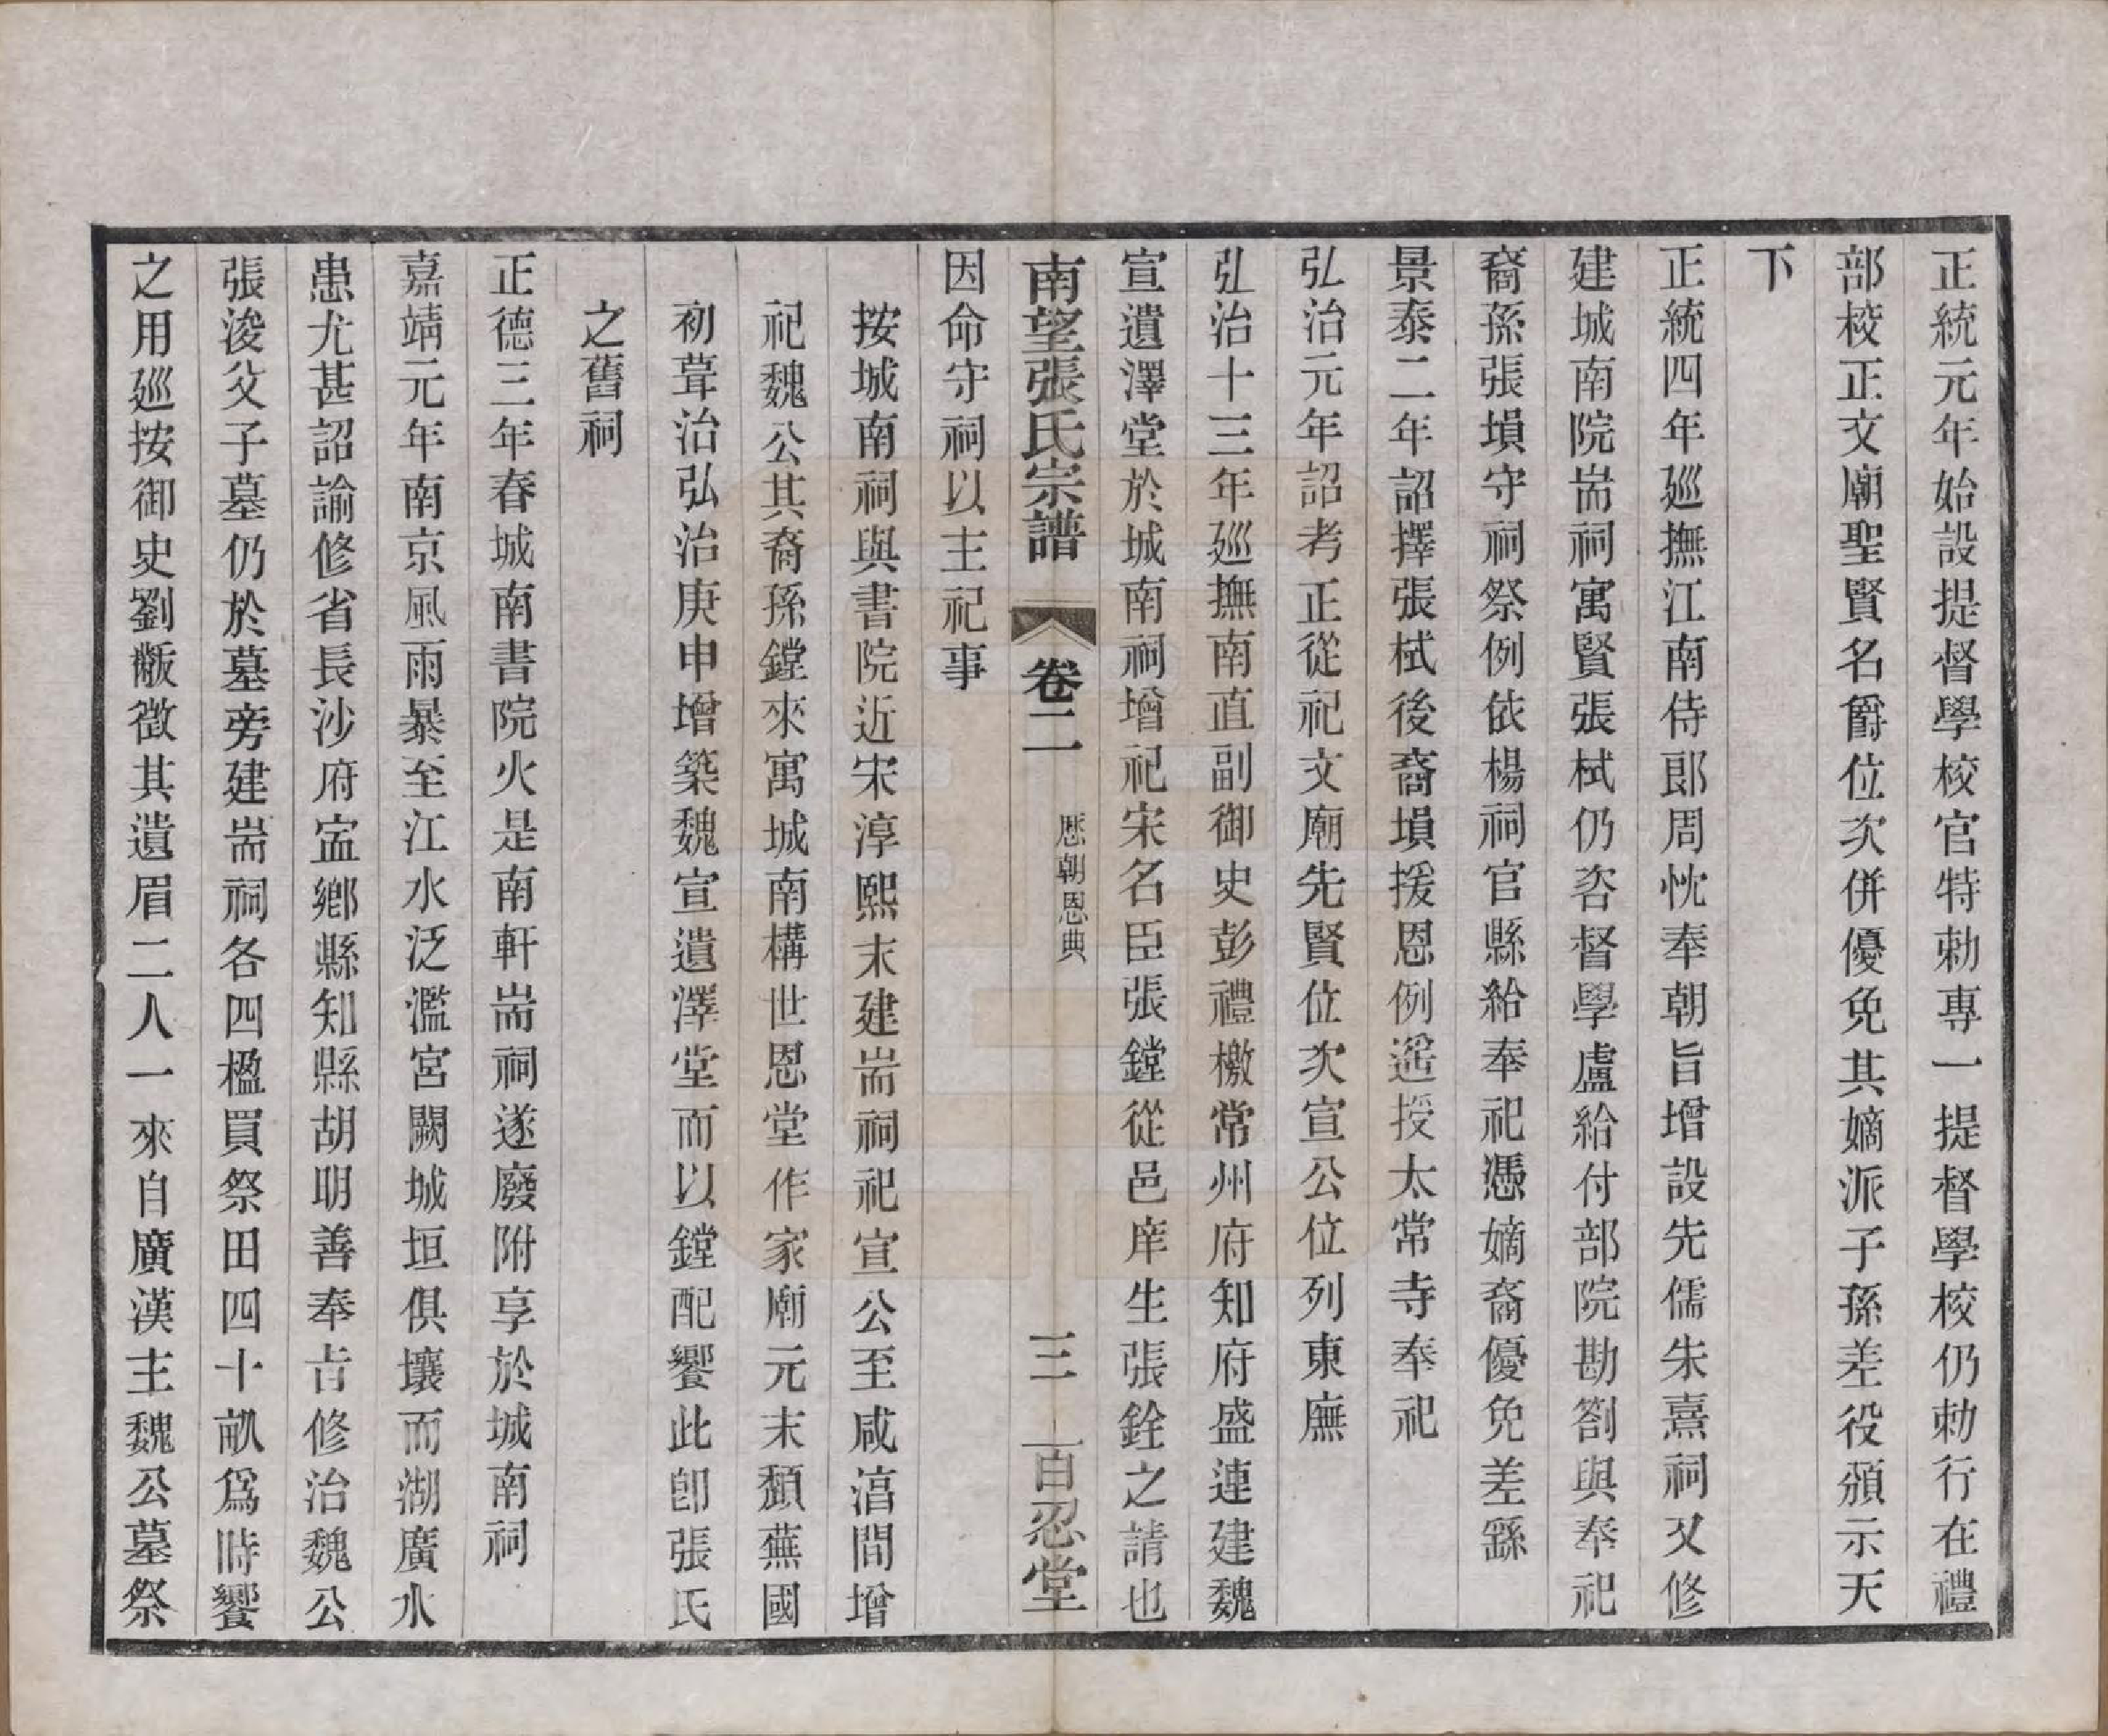 正統元年始設提督學校官特勅專一提督學校仍勅行在禮
部校正文廟聖賢名爵位次併優免其嫡派子孫差役頒示天
下
正統四年廵撫江南侍郎周忱奉朝旨增設先儒朱熹祠又修
建城南院耑祠寓賢張栻仍咨督學盧給付部院勘劄與奉祀
裔孫張塤守祠祭例依楊祠官縣給奉祀憑嫡裔優免差繇
景泰二年詔擇張栻後裔塤援恩例遥授太常寺奉祀
弘治元年詔考正從祀文廟先賢位次宣公位列東廡
弘治十三年廵撫南直副御史彭禮檄常州府知府盛連建魏
宣遺澤堂於城南祠增祀宋名臣張鏜從邑庠生張銓之請也
南望張氏宗譜 卷二 歷朝恩典 三 百忍堂
因命守祠以主祀事
按城南祠與書院近宋淳熙末建耑祠祀宣公至咸湻間增
祀魏公其裔孫鏜來寓城南構世恩堂作家廟元末頹蕪國
初葺治弘治庚申增築魏宣遺澤堂而以鏜配饗此卽張氏
之舊祠
正德三年春城南書院火是南軒耑祠遂廢附享於城南祠
嘉靖元年南京風雨暴至江水泛濫宮闕城垣俱壤而湖廣水
患尤甚詔諭修省長沙府寍鄉縣知縣胡明善奉㫖修治魏公
張浚父子墓仍於墓旁建耑祠各四楹買祭田四十畝爲時饗
之用廵按御史劉敝徵其遺眉二人一來自廣漢主魏公墓祭